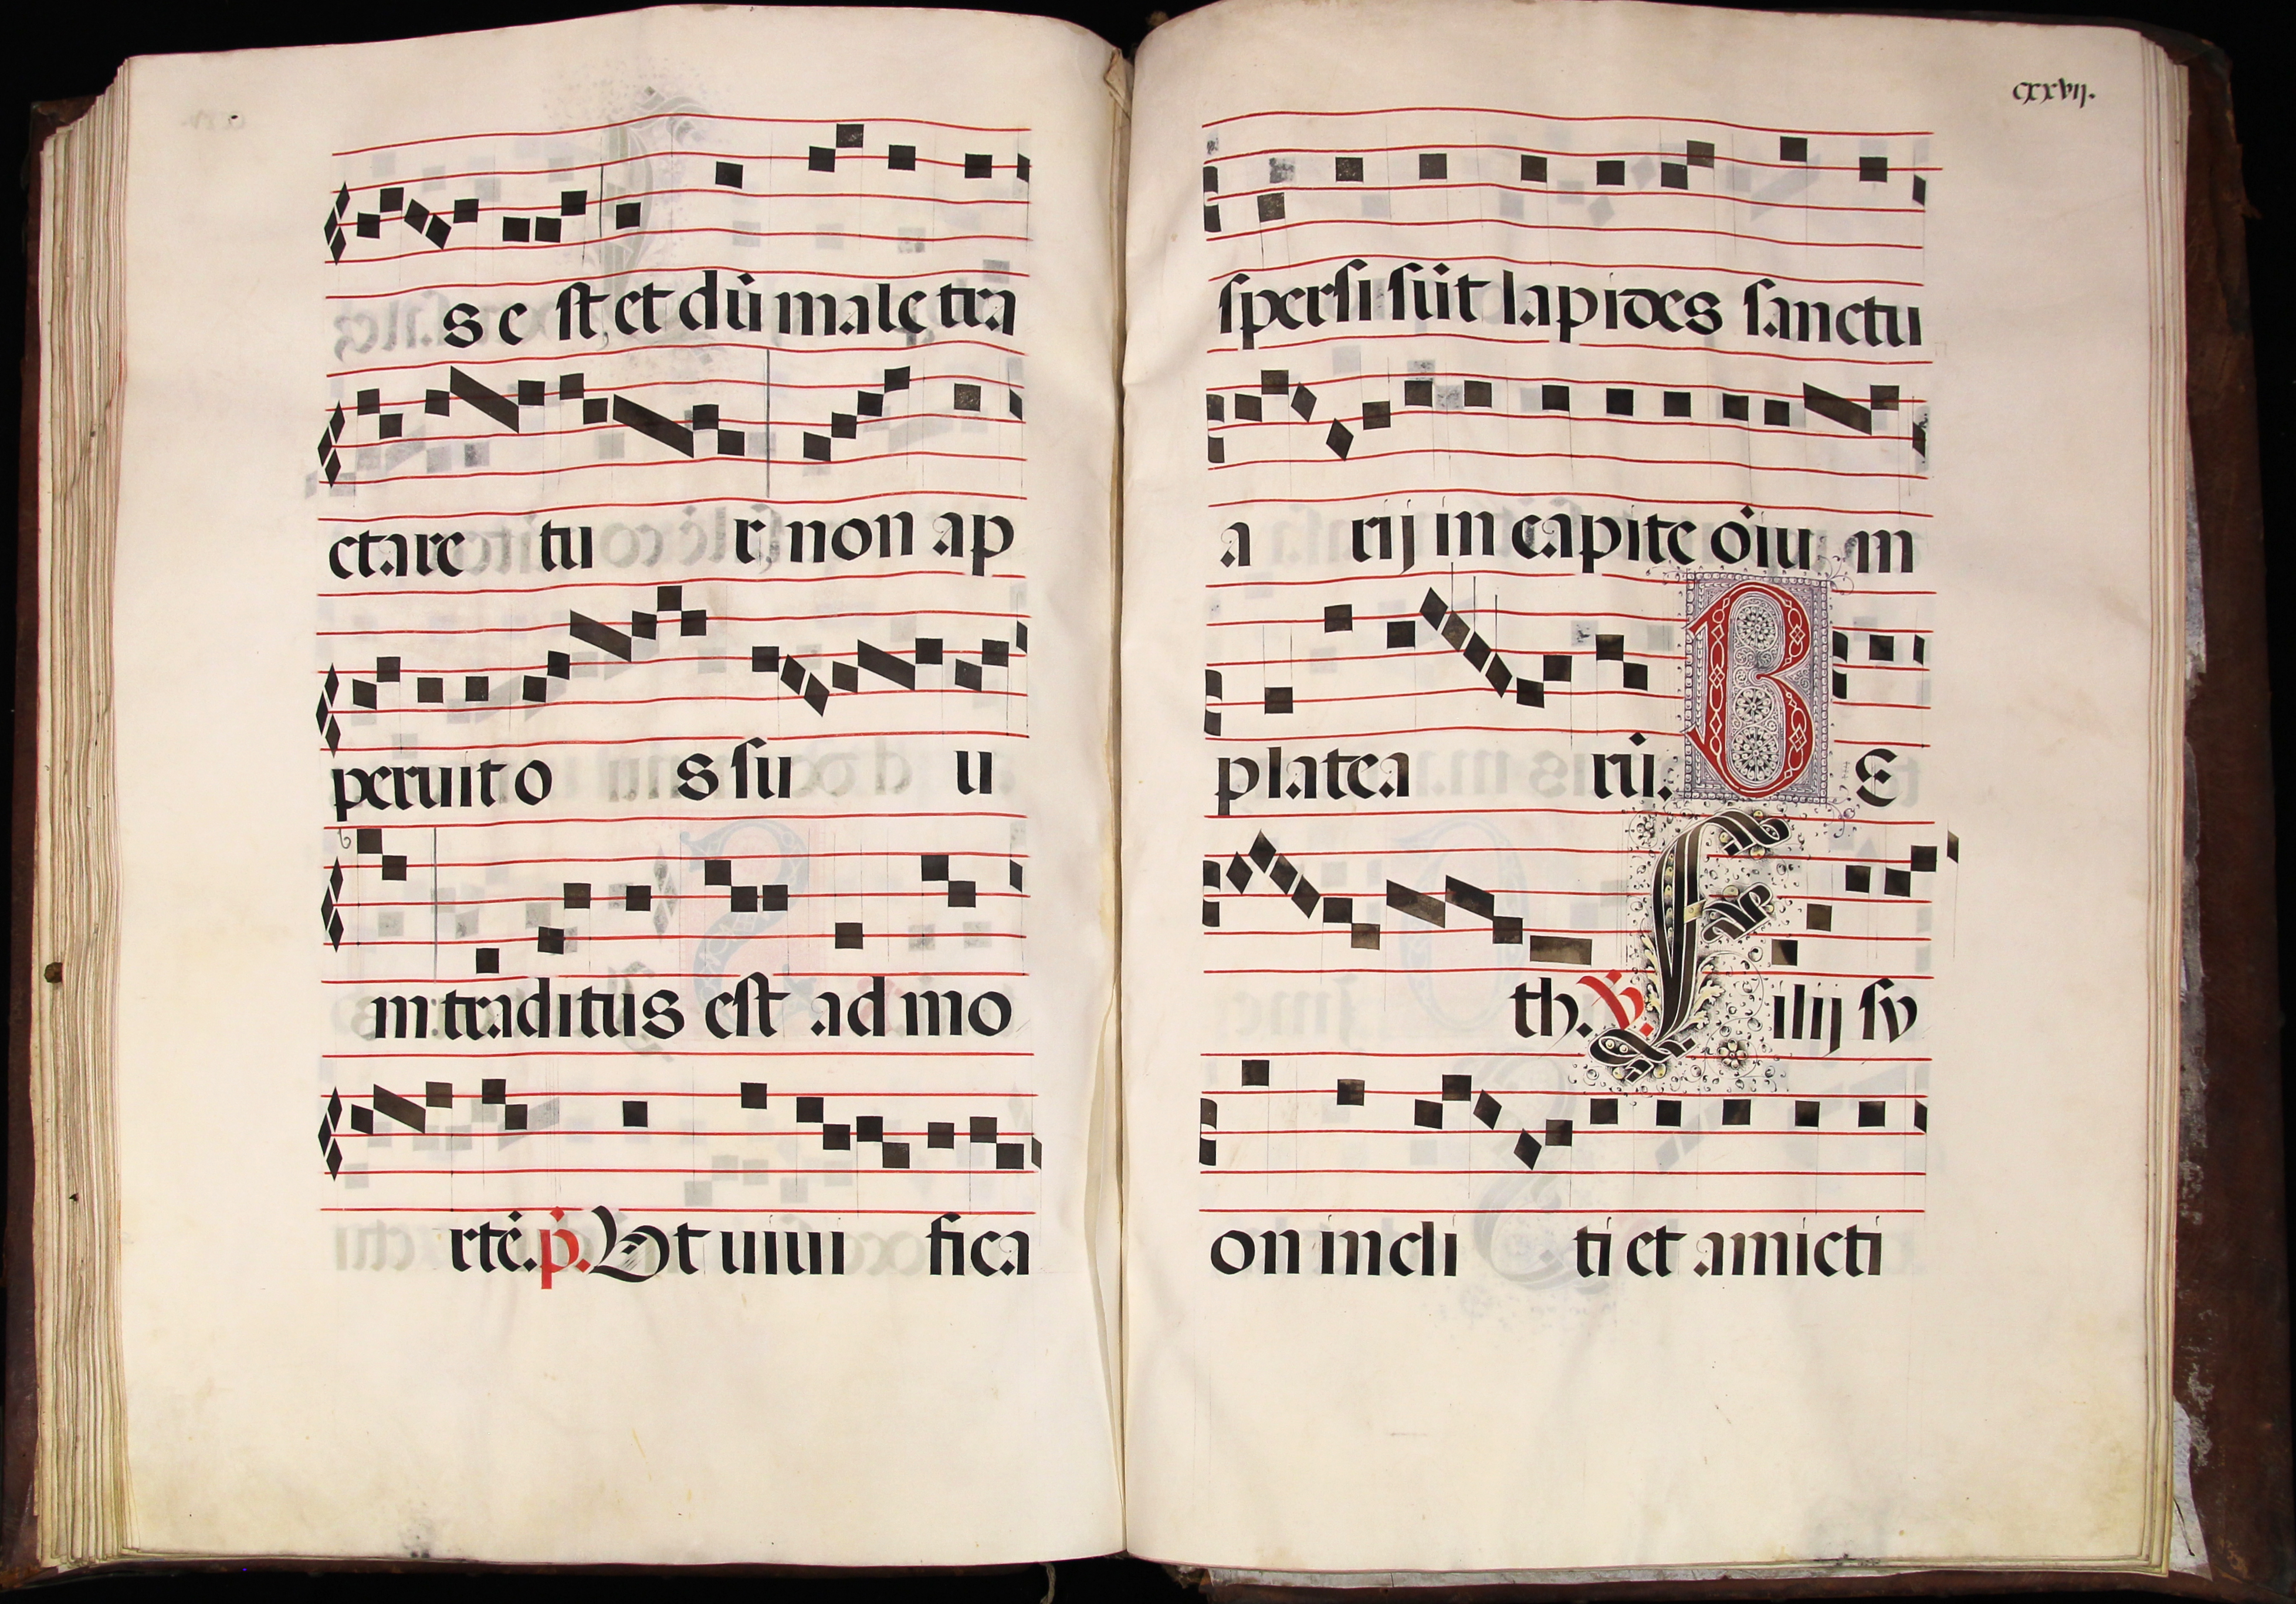 s e st et dū male tra
ctare tu r, non ap
peruit o s su u
m: traditus est ad mo
rtē. p. Ut uiui fica
cxxvij.
spersi sūt lapides sanctu
a rij in capite oīu m
platea rū. B E
th. V. F ilij sy
on incli ti et amicti